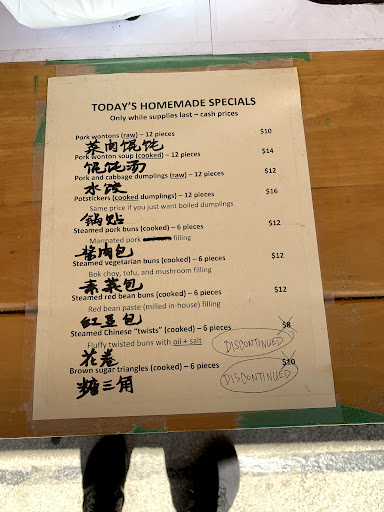 TODAY'S HOMEMADE SPECIALS
Only while supplies last – cash prices
Pork wontons (raw) – 12 pieces $10
菜肉馄饨
Pork wonton soup (cooked) – 12 pieces $14
馄饨汤
Pork and cabbage dumplings (raw) – 12 pieces $12
水饺
Potstickers (cooked dumplings) – 12 pieces $16
Same price if you just want boiled dumplings
锅贴
Steamed pork buns (cooked) – 6 pieces $12
Marinated pork filling
酱肉包
Steamed vegetarian buns (cooked) – 6 pieces $12
Bok choy, tofu, and mushroom filling
素菜包
Steamed red bean buns (cooked) – 6 pieces $12
Red bean paste (milled in-house) filling
红豆包
Steamed Chinese "twists" (cooked) – 6 pieces $8
Fluffy twisted buns with oil + salt DISCONTINUED
花卷
Brown sugar triangles (cooked) – 6 pieces $10
DISCONTINUED
糖三角